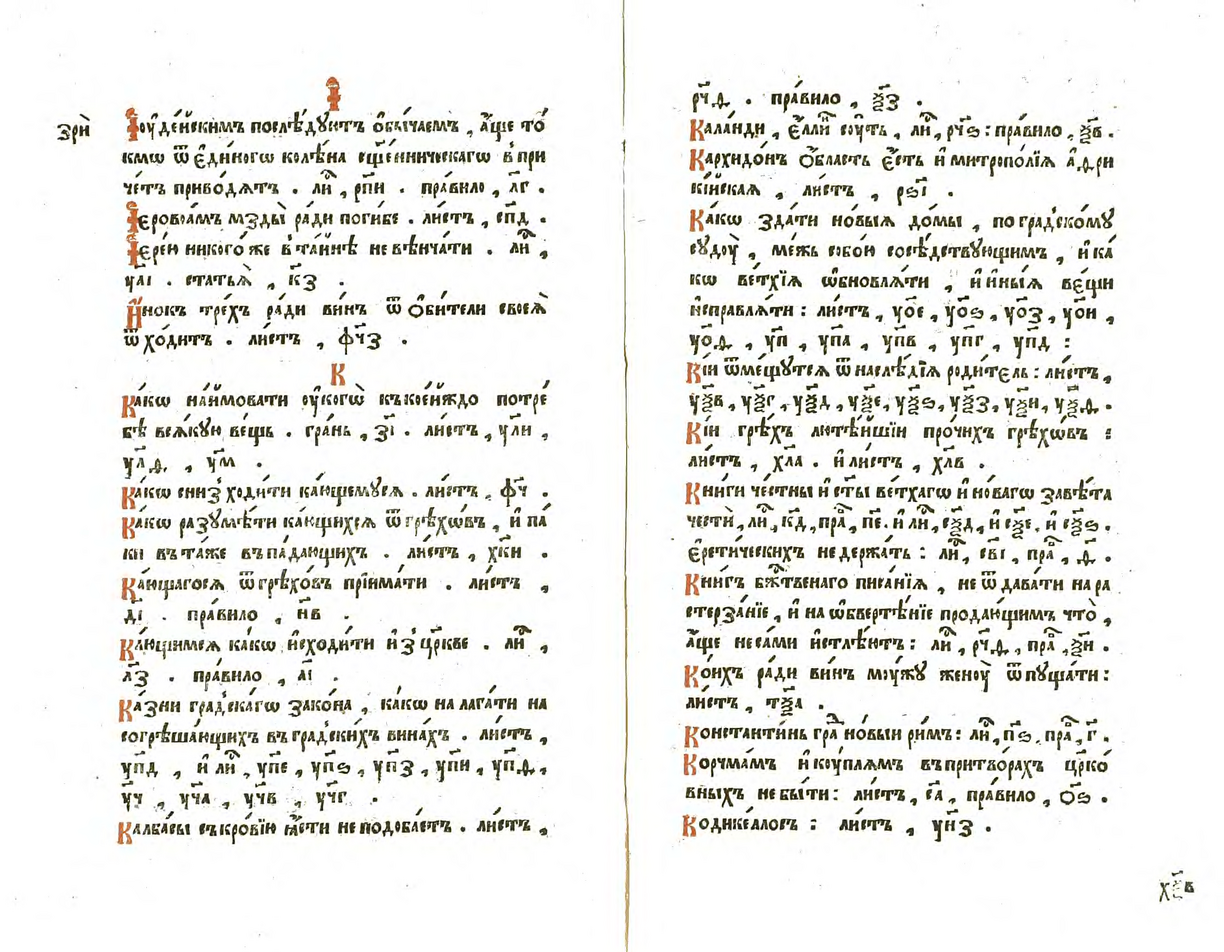 І
зрѝ Іꙋде́йскимъ послѣ́дꙋютъ ѻ҆бы́чаемъ , а҆́ще то́
кмѡ ѿ є҆ди́ногѡ колѣ́на сщ҃е́нническагѡ в̾ при
че́тъ приво́дѧтъ . ли́ , рпи . пра́вило , лг .
Іеровоа́мъ мзды̀ ра́ди поги́бе . ли́стъ , спд .
Іере́ю никого́же в̾та́йнѣ не вѣнча́ти . ли́ ,
уаі . статьѧ̀ , к҃з .
И҆́нокъ тре́хъ ра́ди ви́нъ ѿ ѻ҆би́тели своеѧ̀
ѿхо́дитъ . ли́стъ , фч҃з .
К
Ка́кѡ наи҆мова́ти ᲂу҆кого̀ къ коемꙋ́ждо потре́
бѣ всѧ́кꙋю ве́щь . гра́нь , з҃і . ли́стъ , ул҃и ,
ул҃ѳ , ум҃ .
Ка́кѡ снизходи́ти ка́ющемꙋсѧ . ли́стъ , фч҃ .
Ка́кѡ разꙋмѣ́ти ка́ющихсѧ ѿ грѣхѡ́въ , и҆ па́
ки въ та́же въпа́дающихъ . ли́стъ , хк҃и .
Ка́ющагосѧ ѿ грѣхо́въ прїима́ти . ли́стъ ,
д҃і . пра́вило , н҃в .
Ка́ющимсѧ ка́кѡ и҆сходи́ти и҆з̾ цр҃кве . ли́ ,
л҃з . пра́вило , а҃і .
Ка́зни гра́дскагѡ зако́на , ка́кѡ налага́ти на
согрѣша́ющихъ въ гра́дскихъ вина́хъ . ли́стъ ,
уп҃д , и҆ ли́ , уп҃е , уп҃ѕ , уп҃з , уп҃и , уп҃ѳ ,
уч҃ , уч҃а , уч҃в , уч҃г .
Калбасы̀ съ кро́вїю ꙗ҆́сти не подоба́етъ . ли́стъ ,
рч҃ѳ . пра́вило , ѯ҃з .
Кала́нди , є҆́лли сꙋ́ть , ли́ , рч҃ѕ : пра́вило , ѯ҃в .
Кархидо́нъ ѻ҆́бласть є҆́сть и҆ митропо́лїѧ а҆фри
кі́йскаѧ , ли́стъ , рѕ҃і .
Ка́кѡ зда́ти но́выѧ до́мы , по гра́дскомꙋ
сꙋдꙋ̀ , ме́жь собо́й сосѣ́дствꙋющимъ , и҆ ка́
кѡ ве́тхїѧ ѡ҆бновлѧ́ти , и҆ и҆ны́ѧ ве́щи
и҆справлѧ́ти : ли́стъ , уо҃е , уо҃ѕ , уо҃з , уо҃и ,
уо҃ѳ , уп҃ , уп҃а , уп҃в , уп҃г , уп҃д :
Кі́и ѿме́щꙋтсѧ ѿ наслѣ́дїѧ роди́тель : ли́стъ ,
уѯ҃в , уѯ҃г , уѯ҃д , уѯ҃е , уѯ҃ѕ , уѯ҃з , уѯ҃и , уѯ҃ѳ .
Кі́и грѣ́хъ лютѣ́йшїи про́чихъ грѣхѡ́въ :
ли́стъ , хл҃а . и҆ ли́стъ , хл҃в .
Кни́ги че́стны и҆ ст҃ы ве́тхагѡ и҆ но́вагѡ завѣ́та
че́сти , ли́ , к҃д , пра́ , п҃е . и҆ ли́ , сѯ҃д , и҆ сѯ҃е , и҆ сѯ҃ѕ .
є҆рети́ческихъ не держа́ть : ли́ , св҃і , пра́ , ѳ҃ .
Кни́гъ бж҃тве́наго писа́нїѧ , не ѿдава́ти на ра
стерза́нїе , и҆ на ѡ҆бверте́нїе продаю́щимъ что̀ ,
а҆́ще не са́ми и҆стлѣ́ютъ : ли́ , рч҃ѳ , пра́ , ѯ҃и .
Кои́хъ ра́ди ви́нъ мꙋ́жꙋ женꙋ̀ ѿпꙋща́ти :
ли́стъ , тѯ҃а .
Константи́нь гра́ но́выи ри́мъ : ли́ , п҃ѕ , пра́ , г҃ .
Корчма́мъ и҆ кꙋплѧ́мъ въ притво́рахъ цр҃ко́
вныхъ не бы́ти : ли́стъ , с҃а , пра́вило , о҃ѕ .
Кодикеалосъ : ли́стъ , ун҃з .
хѯ҃в